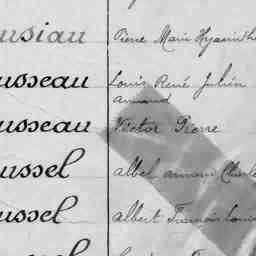 usiau Pierre Marie Hyacinthe
usseau Louis René Julien
Armand
usseau Victor Pierre
ussel albel armand Charles
ussel albert François Louis